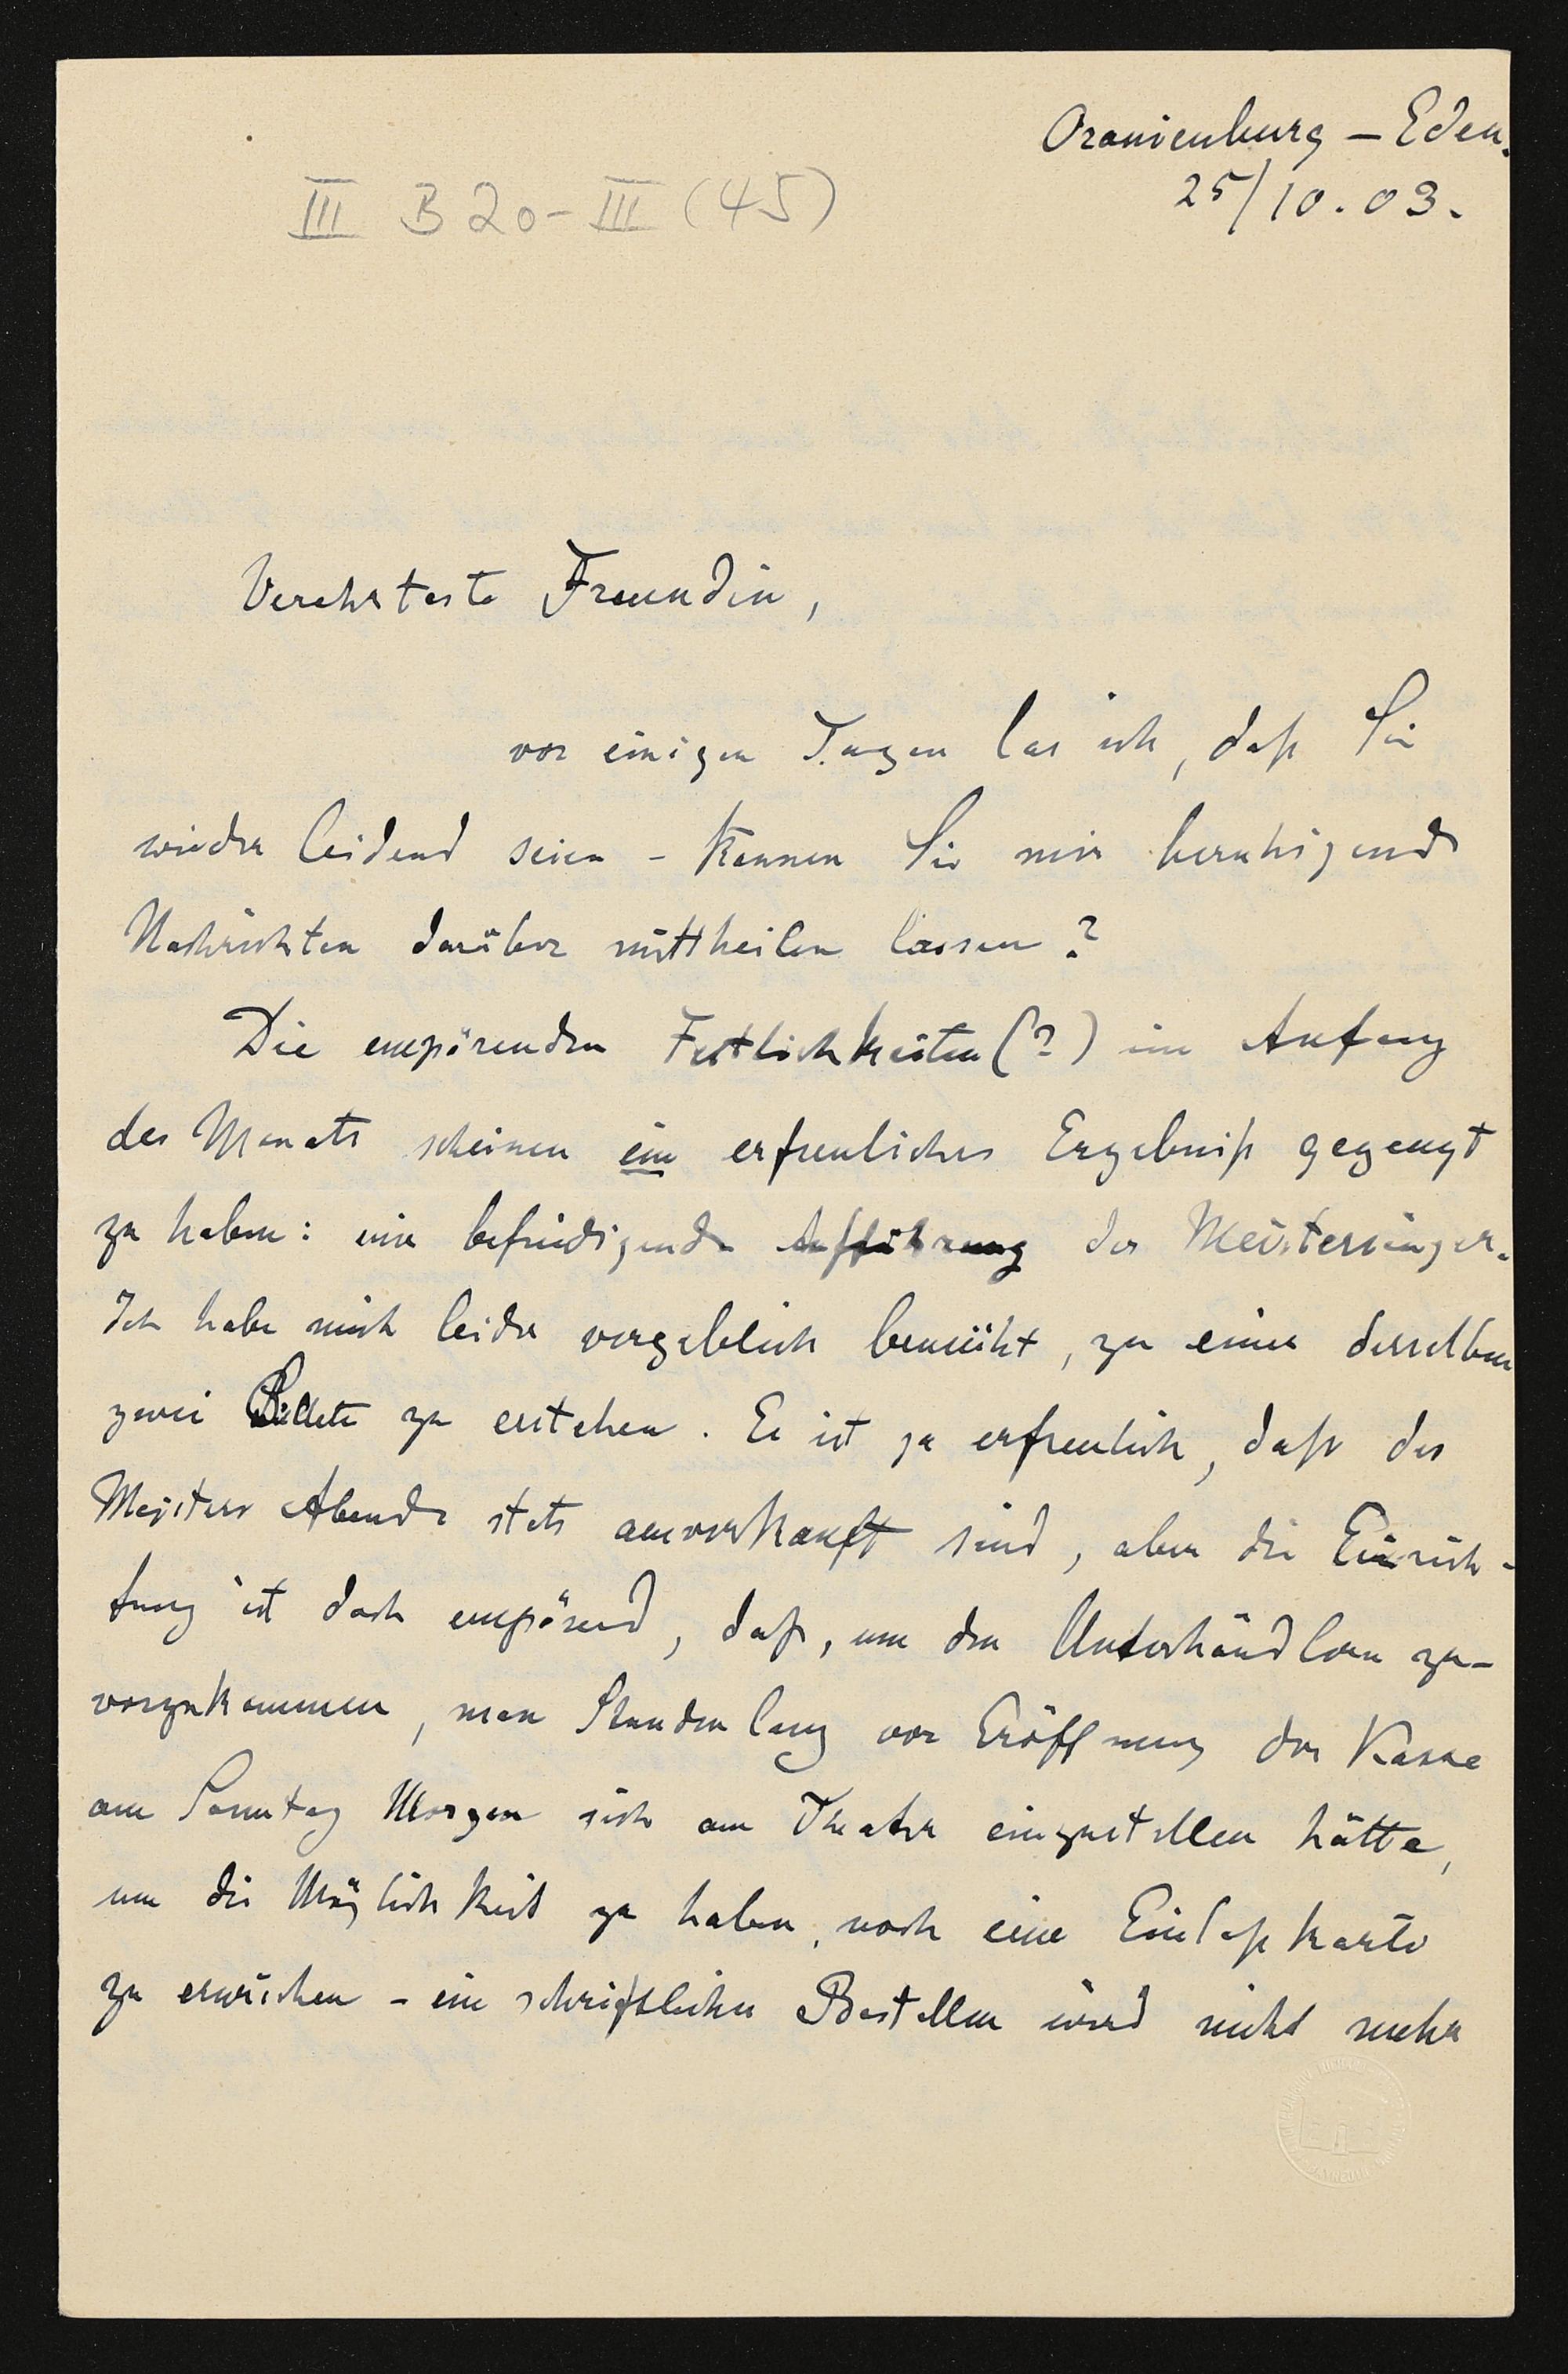 Oranienburg – Eden.
25/10.03.
III B 20-III (45)
Verehrteste Freundin,
vor einigen Tagen las ich, daß Sie
wieder leidend seien – Können Sie mir beruhigende
Nachrichten darüber mittheilen lassen?
Die empörenden Festlichkeiten (?) im Anfang
des Monats scheinen ein erfreuliches Ergebniß gezeugt
zu haben: eine befriedigende Aufführung der Meistersinger.
Ich habe mich leider vergeblich bemüht, zu einer derselben
zwei Billete zu erstehen. Es ist ja erfreulich, daß des
Meisters Abende stets ausverkauft sind, aber die Einrich-
tung ist doch empörend, daß, um den Unterhändlern zu-
vorzukommen, man Stunden lang vor Eröffnung der Kasse
am Sonntag Morgen sich am Theater einzustellen hätte,
um die Möglichkeit zu haben, noch eine Einlaßkarte
zu erwischen – ein schriftliches Bestellen wird nicht mehr